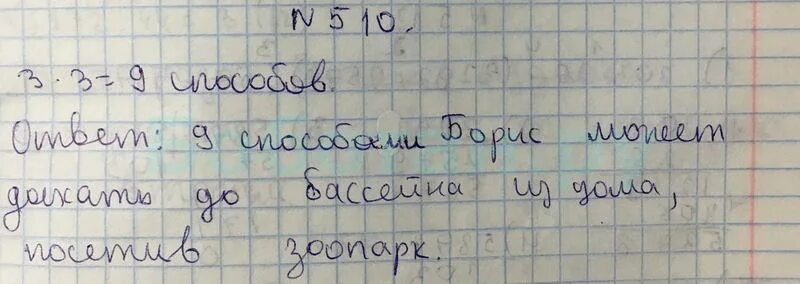 N 510.
3 · 3 = 9 способов.
Ответ: 9 способами Борис может
доехать до бассейна из дома,
посетив зоопарк.